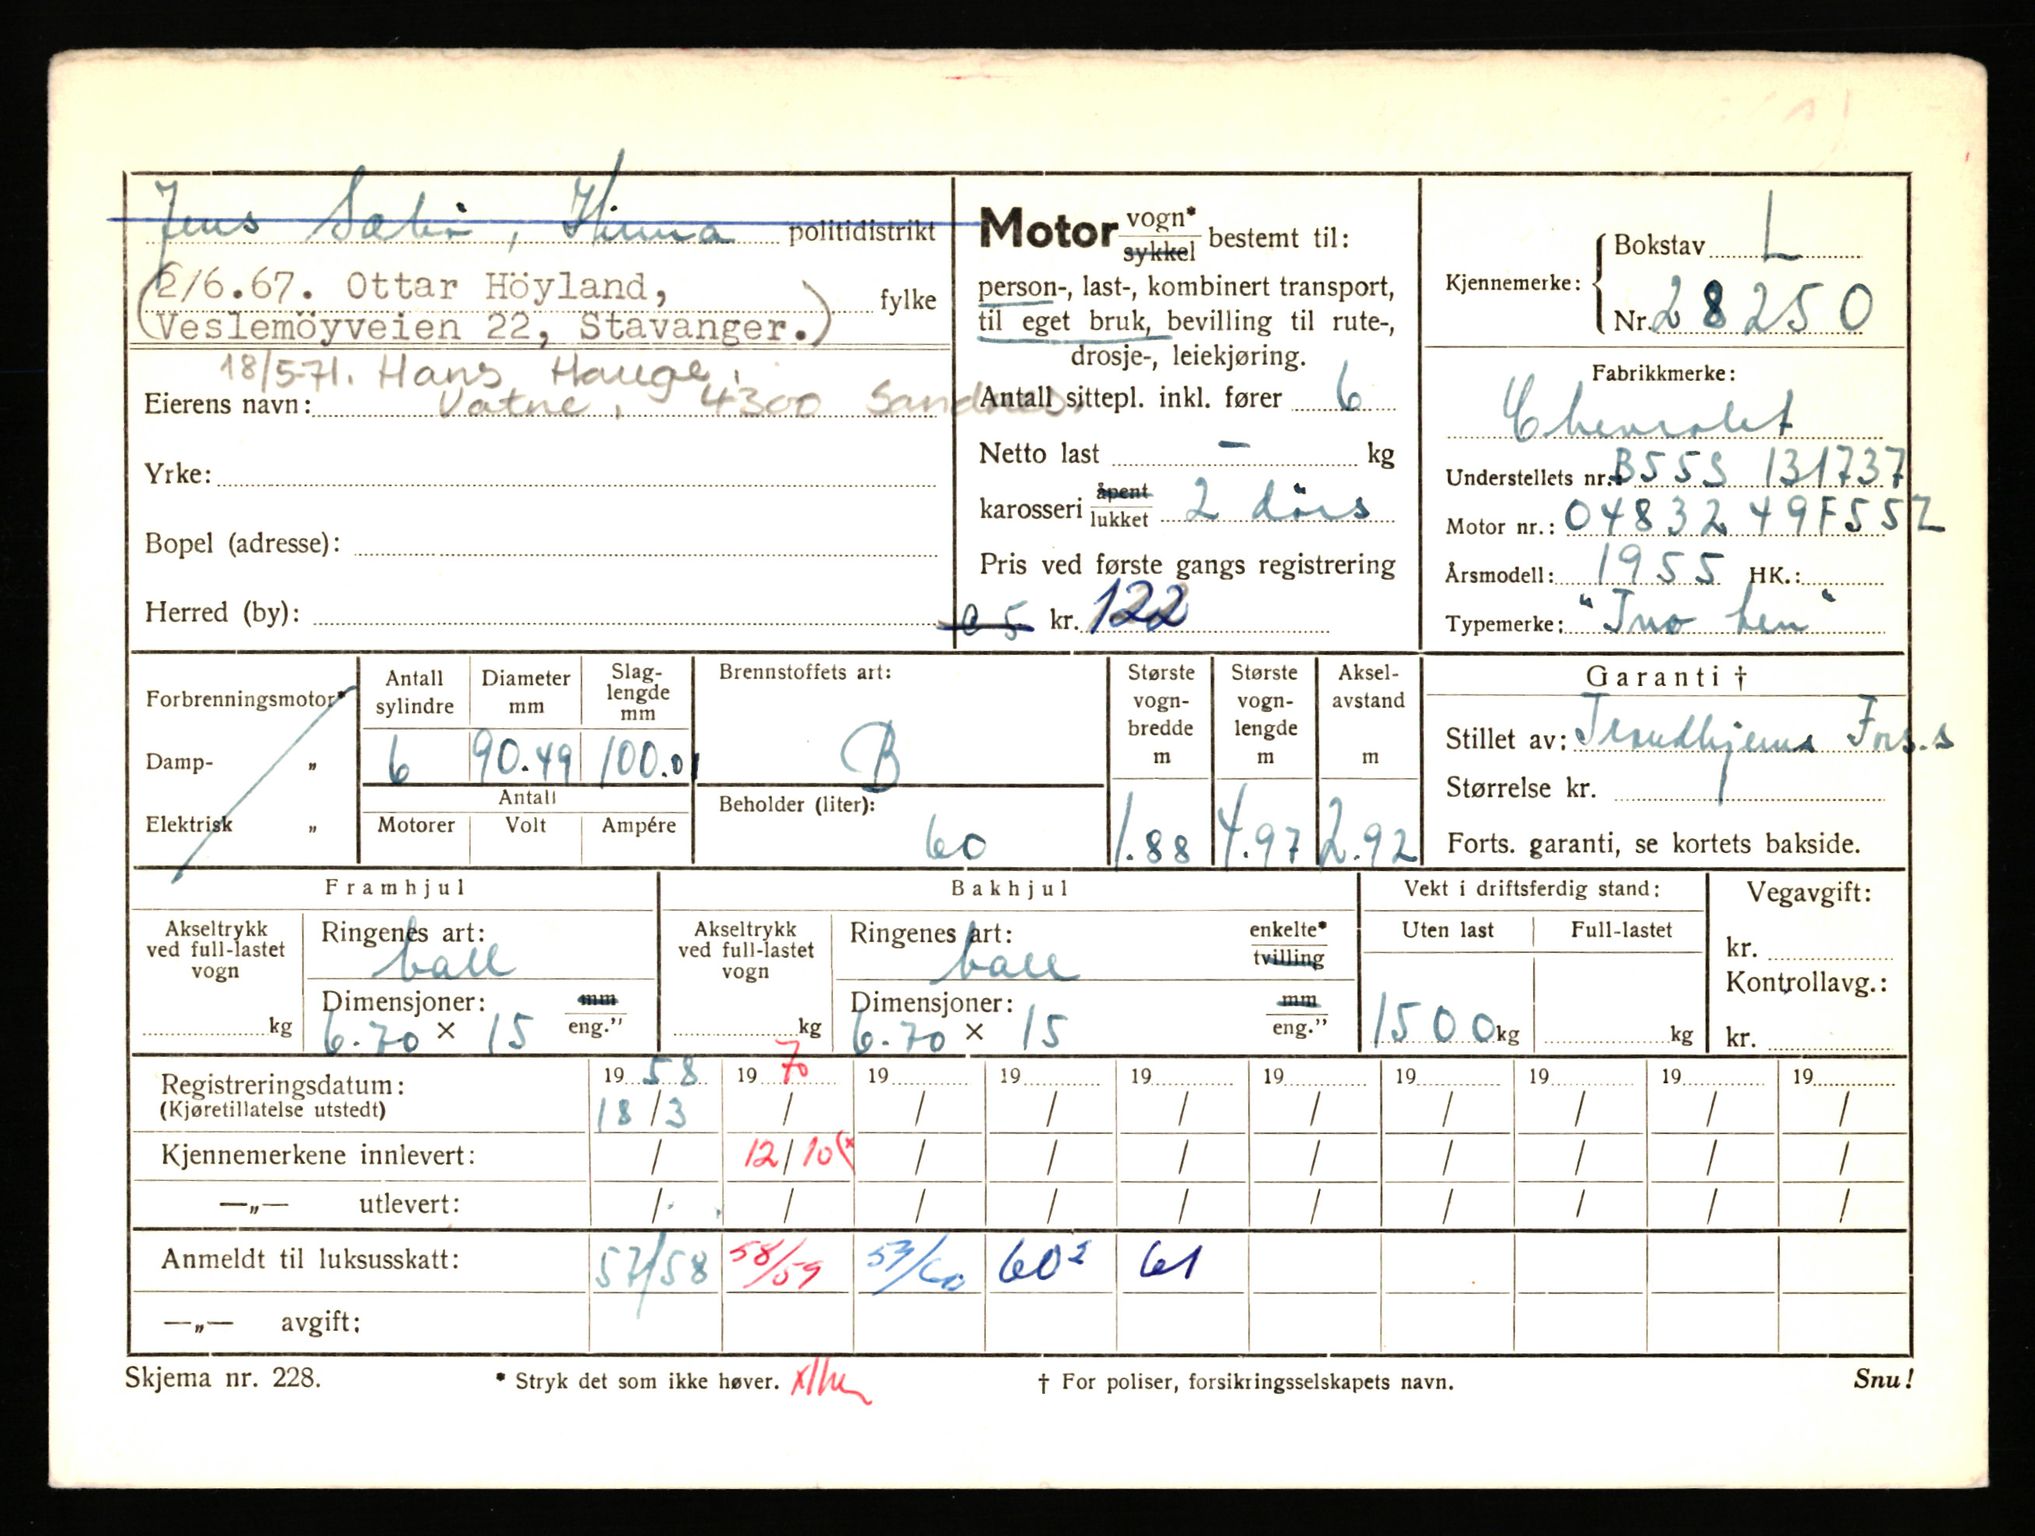 Jens Sæbö, Hinna politidistrikt
(2/6.67. Ottar Höyland, fylke
(Veslemöyveien 22, Stavanger.)
18/5-71. Hans Hauge,
Eierens navn: Vatne, 4300 Sandnes.
Yrke:
Bopel (adresse):
Herred (by):
Motor vogn* sykkel bestemt til:
person-, last-, kombinert transport,
til eget bruk, bevilling til rute-,
drosje-, leiekjøring.
Antall sittepl. inkl. fører 6
Netto last - kg
karosseri åpent lukket 2 dörs
Pris ved første gangs registrering
kr. 122
Kjennemerke: Bokstav L
Nr. 28250
Fabrikkmerke:
Chevrolet
Understellets nr.: B55S 131737
Motor nr.: 0483249F55Z
Årsmodell: 1955 HK.:
Typemerke: "Two ten"
Forbrenningsmotor*
Damp- „
Elektrisk „
Antall sylindre 6
Diameter mm 90.49
Slag-lengde mm 100.01
Antall
Motorer Volt Ampére
Brennstoffets art:
B
Beholder (liter):
60
Største vogn-bredde m 1.88
Største vogn-lengde m 4.97
Aksel-avstand m 2.92
Garanti †
Stillet av: Trondhjems Fors.s
Størrelse kr.
Forts. garanti, se kortets bakside.
Framhjul
Akseltrykk ved full-lastet vogn kg
Ringenes art:
ball
Dimensjoner: mm eng."
6.70 × 15
Bakhjul
Akseltrykk ved full-lastet vogn kg
Ringenes art: enkelte* tvilling
ball
Dimensjoner: mm eng."
6.70 × 15
Vekt i driftsferdig stand:
Uten last Full-lastet
1500 kg kg
Vegavgift:
kr.
Kontrollavg.:
kr.
Registreringsdatum: 19 58 19 70 19 19 19 19 19 19 19 19
(Kjøretillatelse utstedt) 18/3 / / / / / / / / /
Kjennemerkene innlevert: / 12/10(x / / / / / / / /
—„— utlevert: / / / / / / / / / /
Anmeldt til luksusskatt: 57/58 58/59 59/60 60² 61
—„— avgift:
Skjema nr. 228. * Stryk det som ikke høver. † For poliser, forsikringsselskapets navn. Snu!